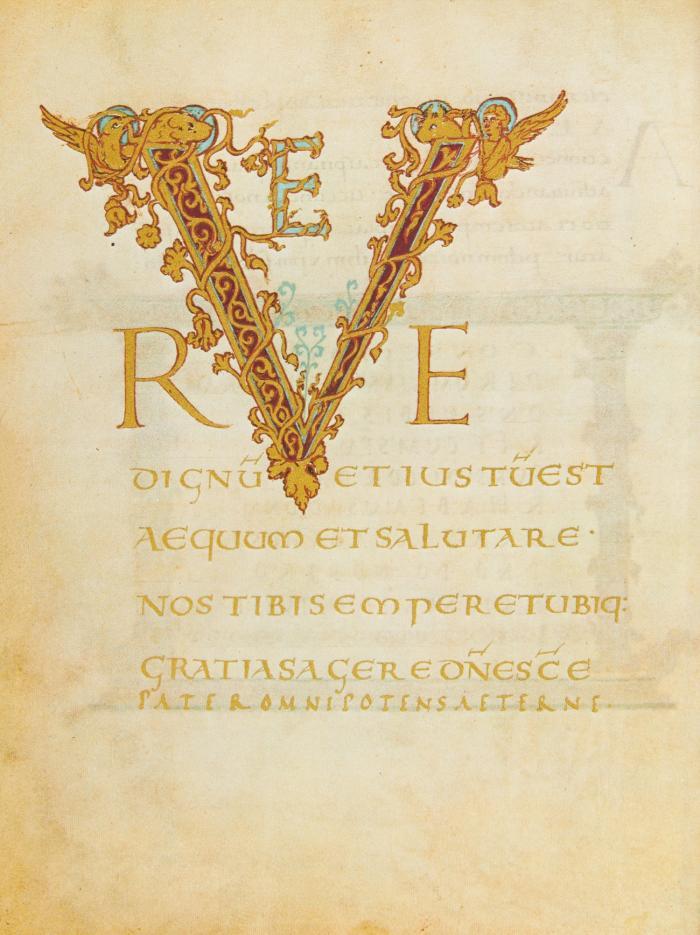 VE
R E
DIGNŪ ET IUSTŪ EST
AEQUUM ET SALUTARE·
NOS TIBI SEMPER ET UBIQ:
GRATIAS AGERE DN̄E SC̄E
PATER OMNIPOTENS AETERNE·